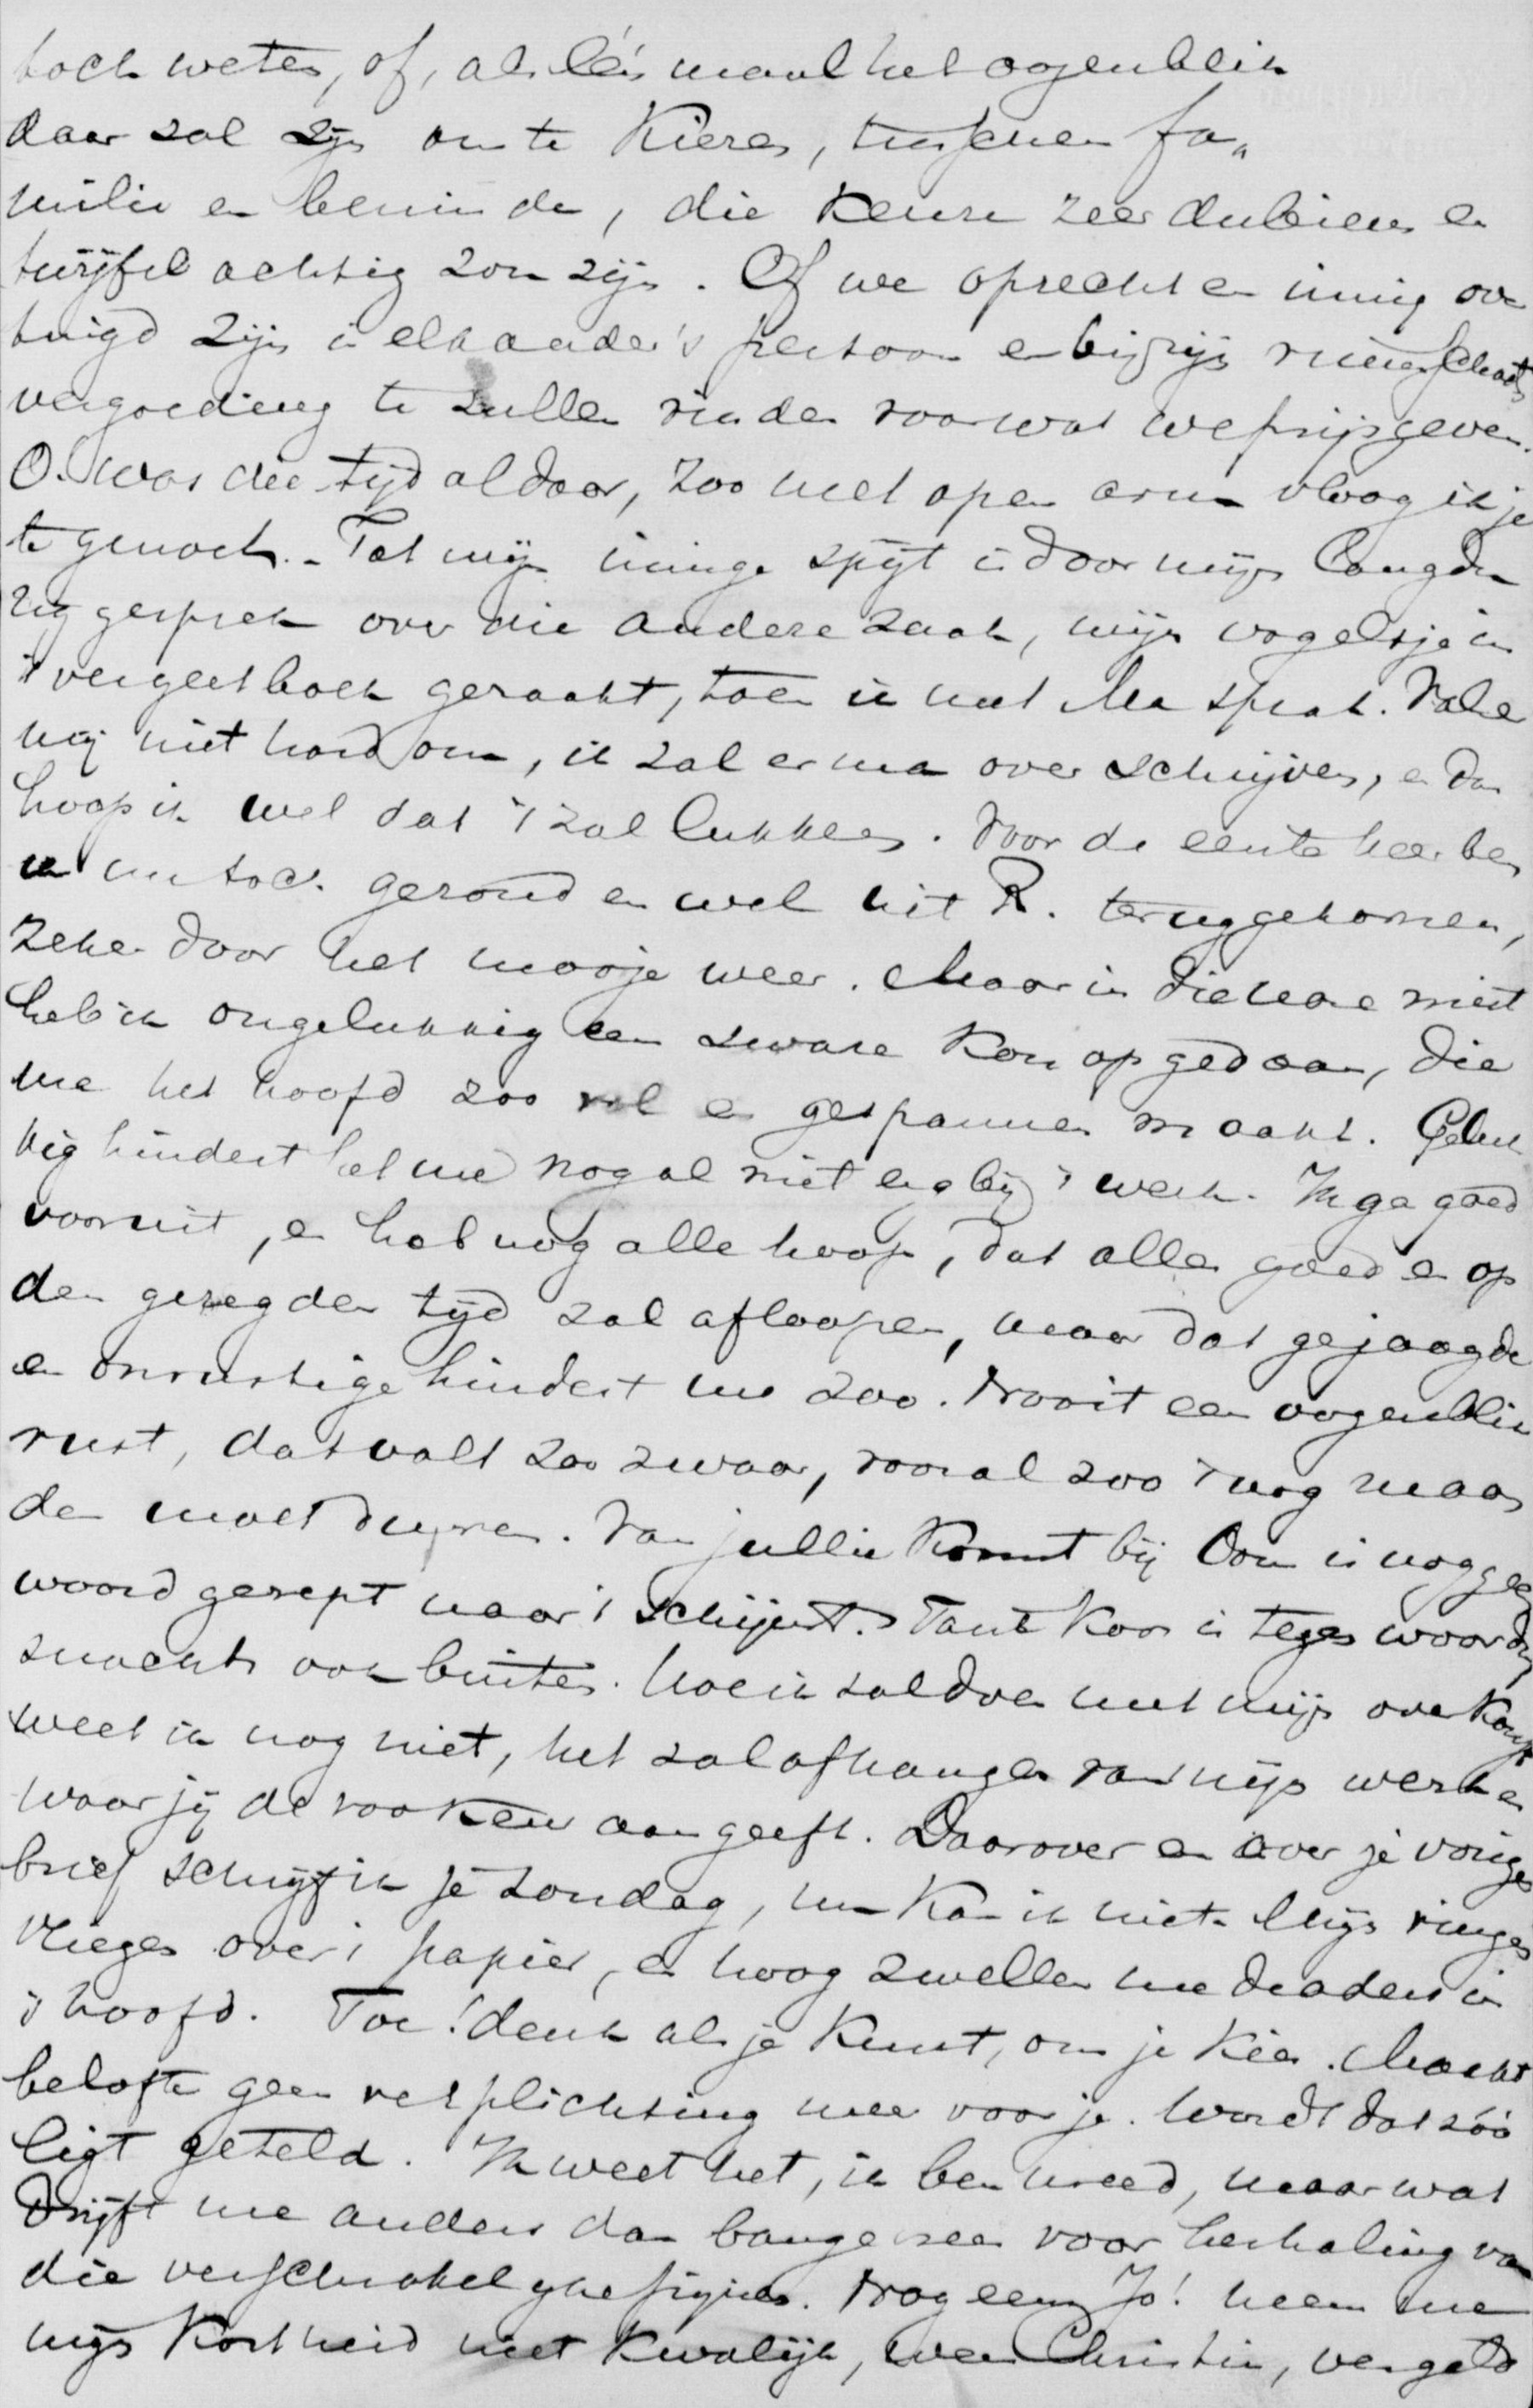 toch weten, of, als één maal het oogenblik
daar zal zijn om te kiezen, tusschen fa„
milie en beminde, die keuze zeer dubieus en
twijfelachtig zou zijn. Of we oprecht en innig over
tuigd zijn in elkaander's persoon en bijzijn ruimschoots
vergoeding te zullen vinden voor wat we prijsgeven.
O. was die tijd al daar, zoo met open armen vloog ik je
te gemoet. - Tot mijn innige spijt is door mijn langdu
rig gesprek over die andere zaak, mijn vogeltje in
't vergeetboek geraakt, toen ik met Ma sprak. Val er
mij niet hard om, ik zal er ma over schrijven, en dan
hoop ik wel dat 't zal lukken. Voor de eerste keer ben
ik nu toch gezond en wel uit R. teruggekomen,
zeker door het mooje weer. Maar in die nare mist
heb ik ongelukkig een zware kou opgedaan, die
me het hoofd zoo vol en gespannen maakt. Geluk
kig hindert het me nog al niet erg bij 't werk. Ik ga goed
vooruit, en heb nog alle hoop, dat alles goed en op
den gezegden tijd zal afloopen, maar dat gejaagde
en onrustige hindert me zoo. Nooit een oogenblik
rust, dat valt zoo zwaar, vooral zoo 't nog maan
den moet duren. Van jullie komst bij Oom is nog geen
woord gerept naar 't schijnt. Tante Koos is tegenwoordig
smachts ook buiten. Hoe ik zal doen met mijn overkomst
weet ik nog niet, het zal afhangen van mijn werk en
waar jij de voorkeur aan geeft. Daarover en over je vorigen
brief schrijf ik je Zondag, nu kan ik niet. Mijn vingers
vliegen over 't papier, en hoog zwellen me de aders in
't hoofd. Toe! denk als je kunt, om je kies. Maakt
belofte geen verplichting meer voor je. Wordt dat zóó
ligt geteld. Ik weet het, ik ben wreed, maar wat
drijft me anders dan bange vrees voor herhaling van
die verschrikkelijke pijnen. Nog eens Jo! neem me
mijn kortheid niet kwalijk, wees Christin, vergeld